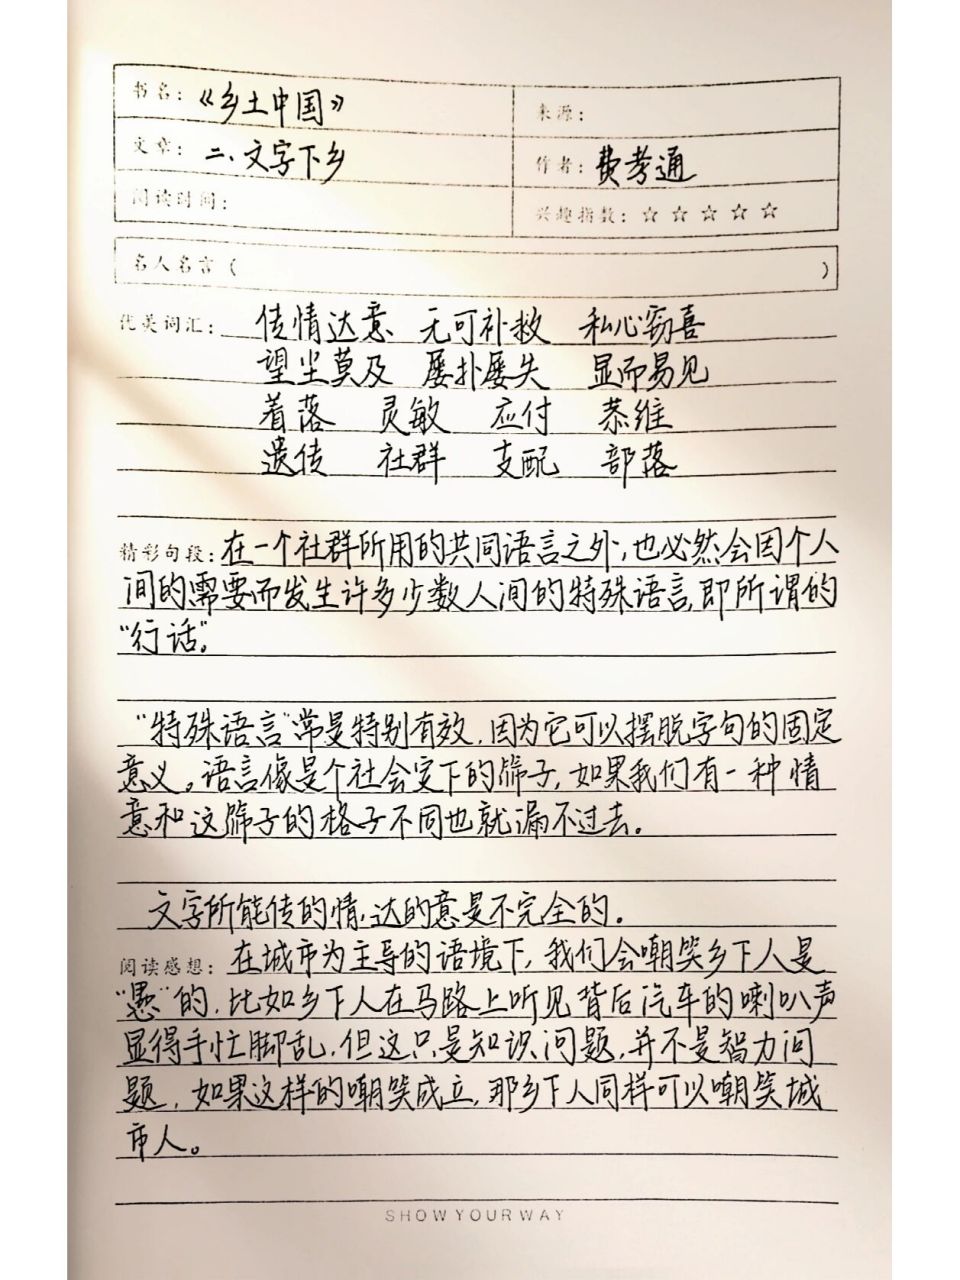 书名：《乡土中国》
来源：
文章：二、文字下乡
作者：费孝通
阅读时间：
兴趣指数：☆ ☆ ☆ ☆ ☆
名人名言（ ）
优美词汇：传情达意 无可补救 私心窃喜
望尘莫及 屡扑屡失 显而易见
着落 灵敏 应付 恭维
遗传 社群 支配 部落
精彩句段：在一个社群所用的共同语言之外，也必然会因个人
间的需要而发生许多少数人间的特殊语言，即所谓的
“行话”。
“特殊语言”常是特别有效，因为它可以摆脱字句的固定
意义。语言像是个社会定下的筛子，如果我们有一种情
意和这筛子的格子不同也就漏不过去。
文字所能传的情，达的意是不完全的。
阅读感想：在城市为主导的语境下，我们会嘲笑乡下人是
“愚”的，比如乡下人在马路上听见背后汽车的喇叭声
显得手忙脚乱，但这只是知识问题，并不是智力问
题，如果这样的嘲笑成立，那乡下人同样可以嘲笑城
市人。
SHOW YOUR WAY